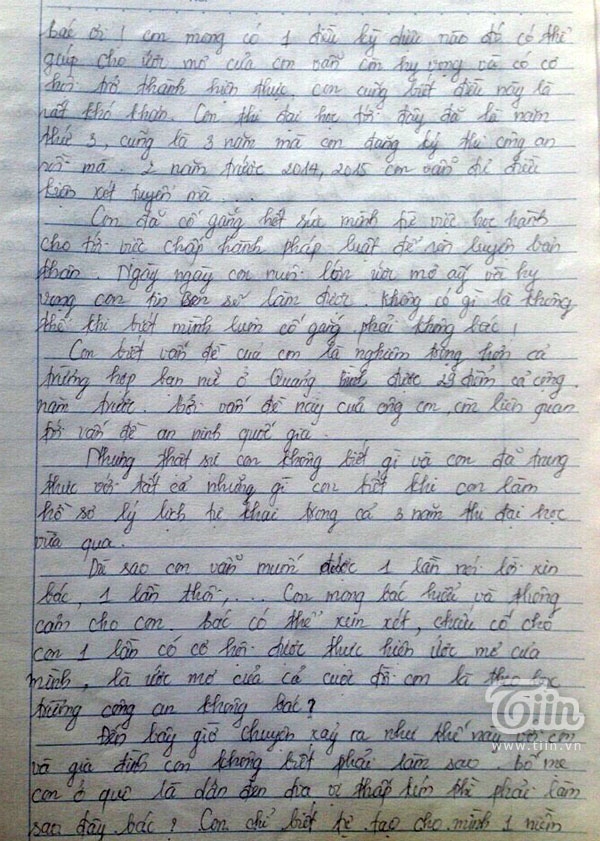 bác ơi! con mong có 1 điều kỳ diệu nào đó có thể
giúp cho ước mơ của con vẫn còn hy vọng và có cơ
hội trở thành hiện thực con cũng biết điều này là
rất khó khăn. Con thi đại học tới đây đã là năm
thứ 3, cũng là 3 năm mà con đăng ký thi công an
rồi mà. 2 năm trước 2014, 2015 con vẫn đủ điều
kiện xét tuyển mà ....
Con đã cố gắng hết sức mình từ việc học hành
cho tới việc chấp hành pháp luật để rèn luyện bản
thân. Ngày ngày con nuôi lớn ước mơ ấy và hy
vọng con tin con sẽ làm được. không có gì là không
thể khi biết mình luôn cố gắng phải không bác!
Con biết vấn đề của con là nghiêm trọng hơn cả
trường hợp bạn nữ ở Quảng Bình được 29 điểm cả cộng
năm trước. bởi vấn đề này của ông con, còn liên quan
tới vấn đề an ninh quốc gia.
Nhưng thật sự con không biết gì và con đã trung
thực với tất cả những gì con biết khi con làm
hồ sơ lý lịch tự khai trong cả 3 năm thi đại học
vừa qua.
Dù sao con vẫn muốn được 1 lần nói lời xin
bác, 1 lần thôi,.... Con mong bác hiểu và thông
cảm cho con. bác có thể xem xét, chiếu cố cho
con 1 lần có cơ hội được thực hiện ước mơ của
mình, là ước mơ của cả cuộc đời con là theo học
trường công an không bác?
Đến bây giờ chuyện xảy ra như thế này với con
và gia đình con không biết phải làm sao. bố mẹ
con ở quê là dân đen địa vị thấp kém thì phải làm
sao đây bác? Con chỉ biết tự tạo cho mình 1 niềm
Tiin
www.tiin.vn